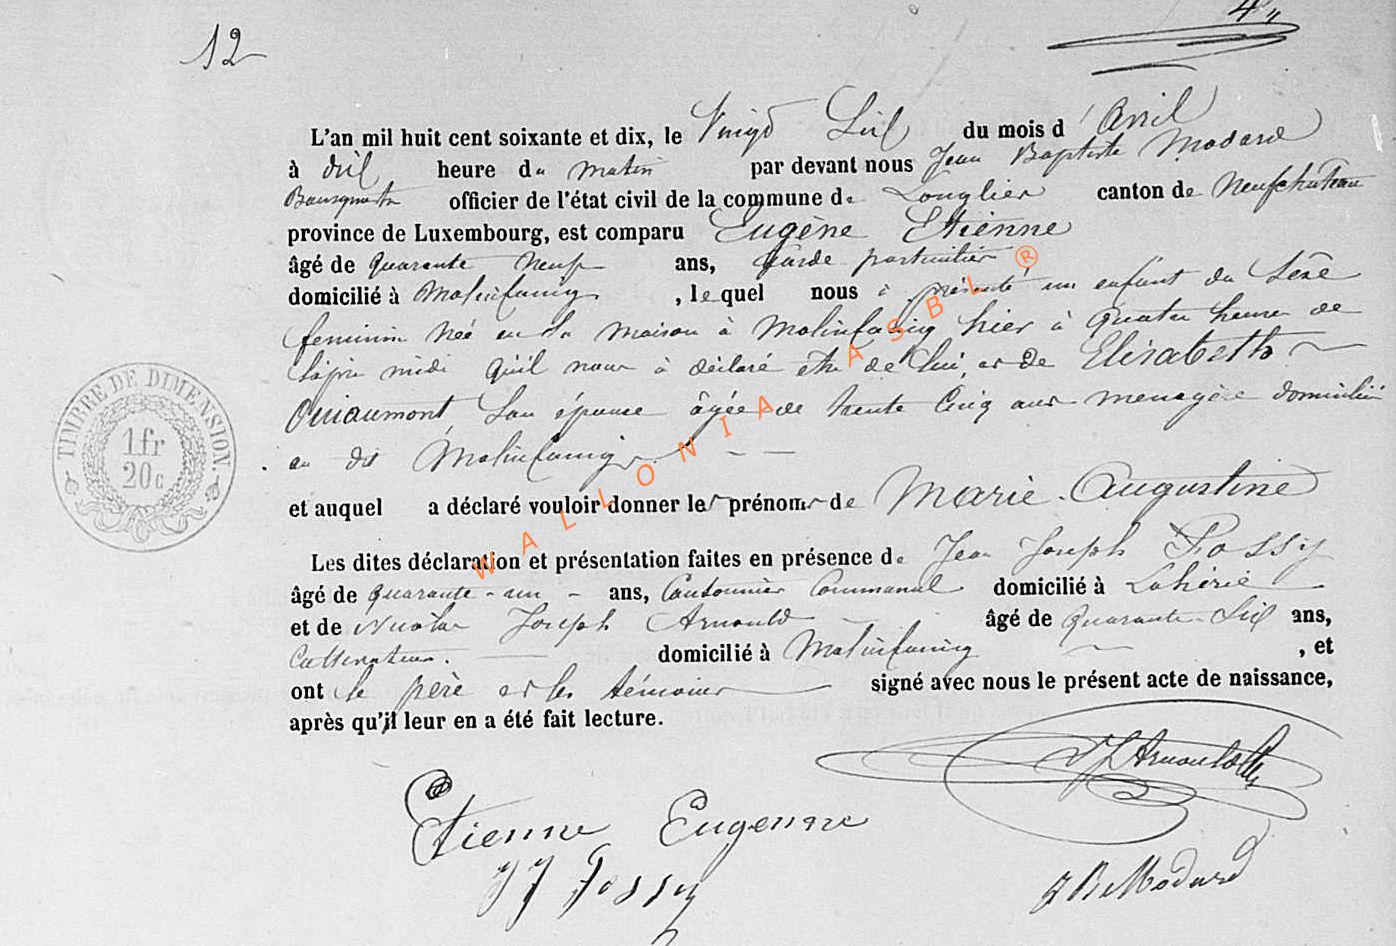 12
4
L'an mil huit cent soixante et dix, le Vingt Six du mois d'Avril
à dix heure du matin par devant nous Jean Baptiste Modard
Bourgmestre officier de l'état civil de la commune de Longlier canton de Neufchateau
province de Luxembourg, est comparu Eugène Etienne
âgé de quarante neuf ans, Garde particulier
domicilié à Molinfaing, lequel nous à présenté un enfant du Séxe
feminin née en sa maison à Molinfaing hier à quatre heures de
l'après midi qu'il nous à déclaré être de lui, et de Elisabeth
son épouse âgée de trente cinq ans menagère domiciliée
au dit Molinfaing
et auquel a déclaré vouloir donner les prénoms de Marie Augustine
Les dites déclaration et présentation faites en présence de Jean Joseph Fossy
âgé de quarante-un ans, Cantonnier Communal domicilié à Lahérie
et de Nicolas Joseph Arnould âgé de Quarante-Six ans,
Cultivateur. domicilié à Molinfaing, et
ont le père et les témoins signé avec nous le présent acte de naissance,
après qu'il leur en a été fait lecture.
TIMBRE DE DIMENSION.
1 fr
20 c
WALLONIA ASBL ®
Arnould
Etienne Eugenne
JJ Fossy
J B Modard